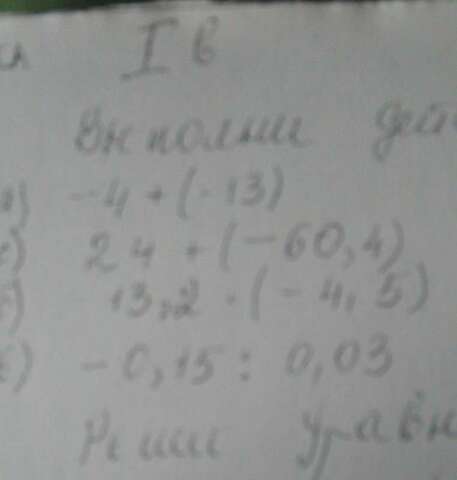 I в
Выполни
-4 + (-13)
24 + (-60,4)
13,2 · (-4,5)
-0,15 : 0,03
Реши уравн